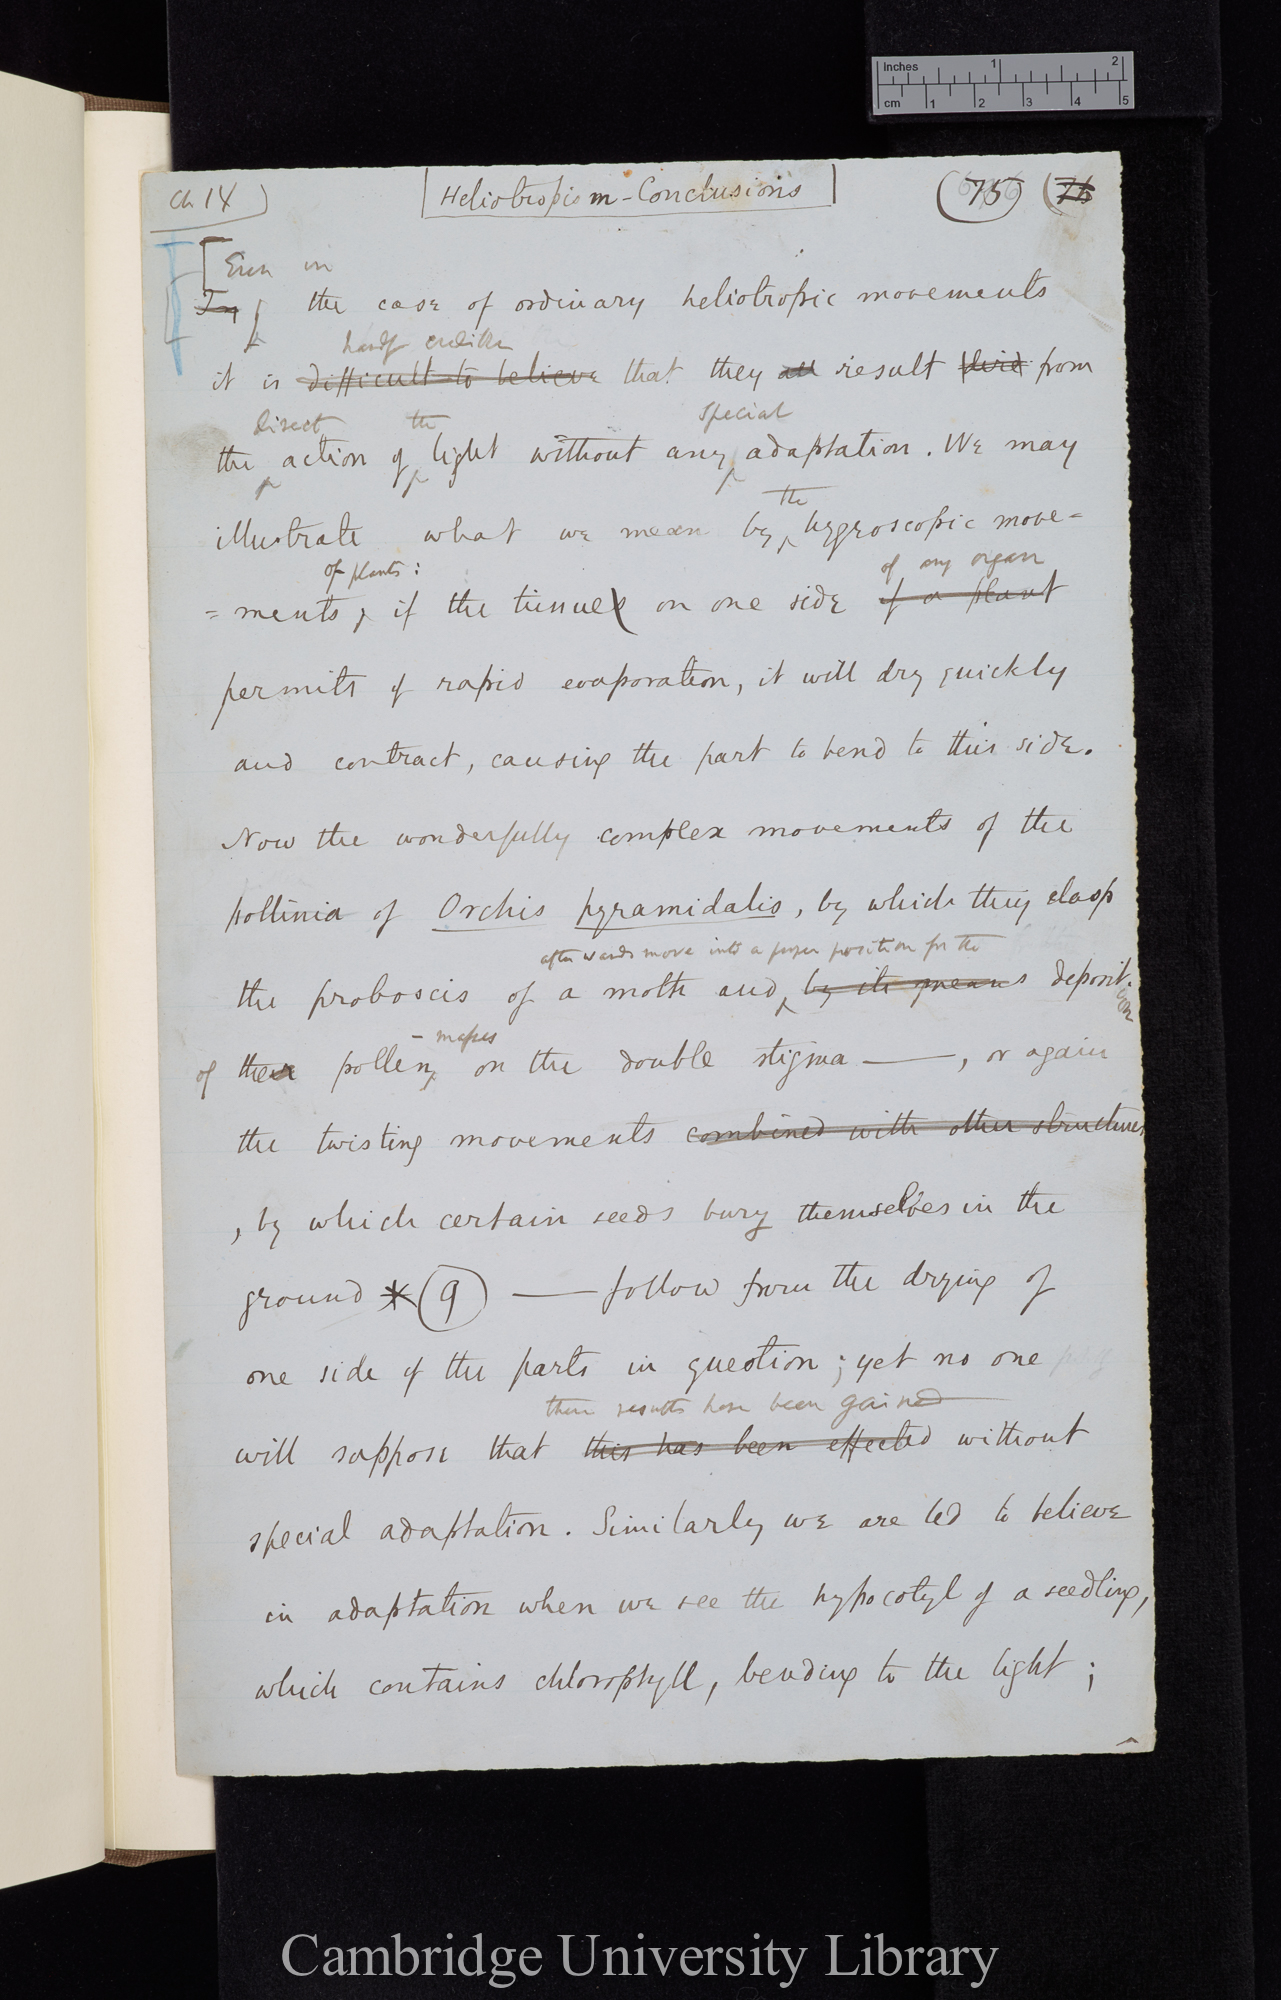 Inches 1 2
cm 1 2 3 4 5
Ch 14
Heliotropism - Conclusions
(75) (76
Even in
In the case of ordinary heliotropic movements
hardly credible
it is difficult to believe that they all result from
direct the special
the action of light without any adaptation. We may
the
illustrate what we mean by hygroscopic move=
of plants: of any organ
=ments, if the tissues on one side of a plant
permits of rapid evaporation, it will dry quickly
and contract, causing the part to bend to this side.
Now the wonderfully complex movements of the
pollinia of Orchis pyramidalis, by which they clasp
afterwards move into a proper position for the
the proboscis of a moth and by its means deposit-
ion
of their pollen on the double stigma —, or again
- masses
the twisting movements combined with other structures
, by which certain seeds bury themselves in the
ground * (9) — follow from the drying of
one side of the parts in question; yet no one
these results have been gained
will suppose that this has been effected without
special adaptation. Similarly we are led to believe
in adaptation when we see the hypocotyl of a seedling,
which contains chlorophyll, bending to the light;
Cambridge University Library